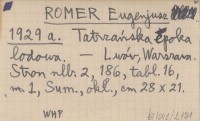 ROMER Eugenjusz
1929 a. Tatrzańska Epoka
lodowa. — Lwów, Warszawa.
Stron nlb 2, 186, tabl. 16,
m. 1, Sum., okł., cm 28 x 21.
WHP